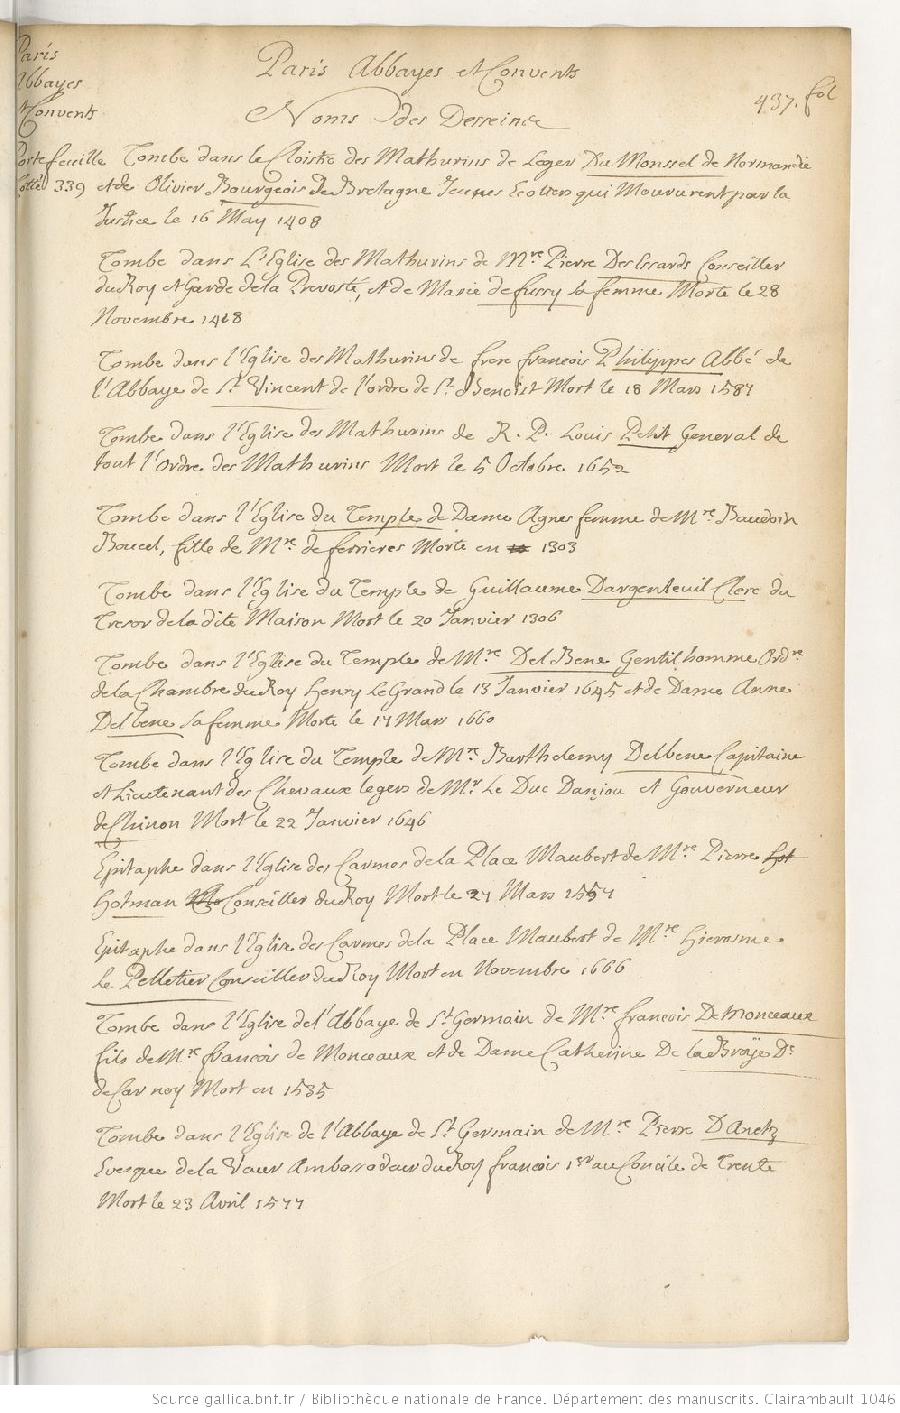 Paris
Abbayes
et Convents
Paris Abbayes et Convents
437. fol
Noms des Desseins
Portefeuille
Cotté 339
Tombe dans le Cloistre des Mathurins de Leger Du Moussel de Normandie
et de Olivier Bourgeois de Bretagne Jeunes Ecoliers qui Moururent par la
Justice le 16 May 1408
Tombe dans L'Eglise des Mathurins de Mre Pierre Des Essards Conseiller
du Roy et Garde de la Prevosté, et de Marie de fussy sa femme Morte le 28
Novembre 1418
Tombe dans l'Eglise des Mathurins de frere francois Philippes Abbé de
l'Abbaye de St Vincent de l'ordre de St Benoist Mort le 18 Mars 1587
Tombe dans l'Eglise des Mathurins de R. P. Louis Petit General de
tout l'Ordre des Mathurins Mort le 5 Octobre 1652
Tombe dans l'Eglise du Temple de Dame Agnes femme de Mre Baudoin
Boucel, fille de Mre de ferrieres Morte en 1303
Tombe dans l'Eglise du Temple de Guillaume Dargenteuil Clerc du
Tresor de la dite Maison Mort le 20 Janvier 1306
Tombe dans l'Eglise du Temple de Mre Del Bene Gentilhomme Ordre
de la Chambre du Roy Henry Le Grand le 13 Janvier 1645 et de Dame Anne
Delbene sa femme Morte le 17 Mars 1660
Tombe dans l'Eglise du Temple de Mre Barthelemy Delbene Capitaine
et Lieutenant des Chevaux legers de Mr Le Duc Danjou et Gouverneur
de Chinon Mort le 22 Janvier 1646
Epitaphe dans l'Eglise des Carmes de la Place Maubert de Mre Pierre Hot
Hotman Conseiller du Roy Mort le 27 Mars 1557
Epitaphe dans l'Eglise des Carmes de la Place Maubert de Mre Hierosme
Le Pelletier Conseiller du Roy Mort en Novembre 1666
Tombe dans l'Eglise de l'Abbaye de St Germain de Mre francois De Monceaux
fils de Mre francois de Monceaux et de Dame Catherine De la Braÿe De
de Carnoy Mort en 1535
Tombe dans l'Eglise de l'Abbaye de St Germain de Mre Pierre Danetz
Evesque de la Vaur Ambassadeur du Roy francois 1er au Concile de Trente
Mort le 23 Avril 1577
Source gallica.bnf.fr / Bibliothèque nationale de France. Département des manuscrits. Clairambault 1046